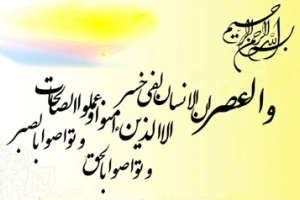 بسم الله الرحمن الرحیم
والعصر ان الانسان لفی خسر
الا الذین ءامنوا و عملوا الصالحات
و تواصوا بالحق
و تواصوا بالصبر